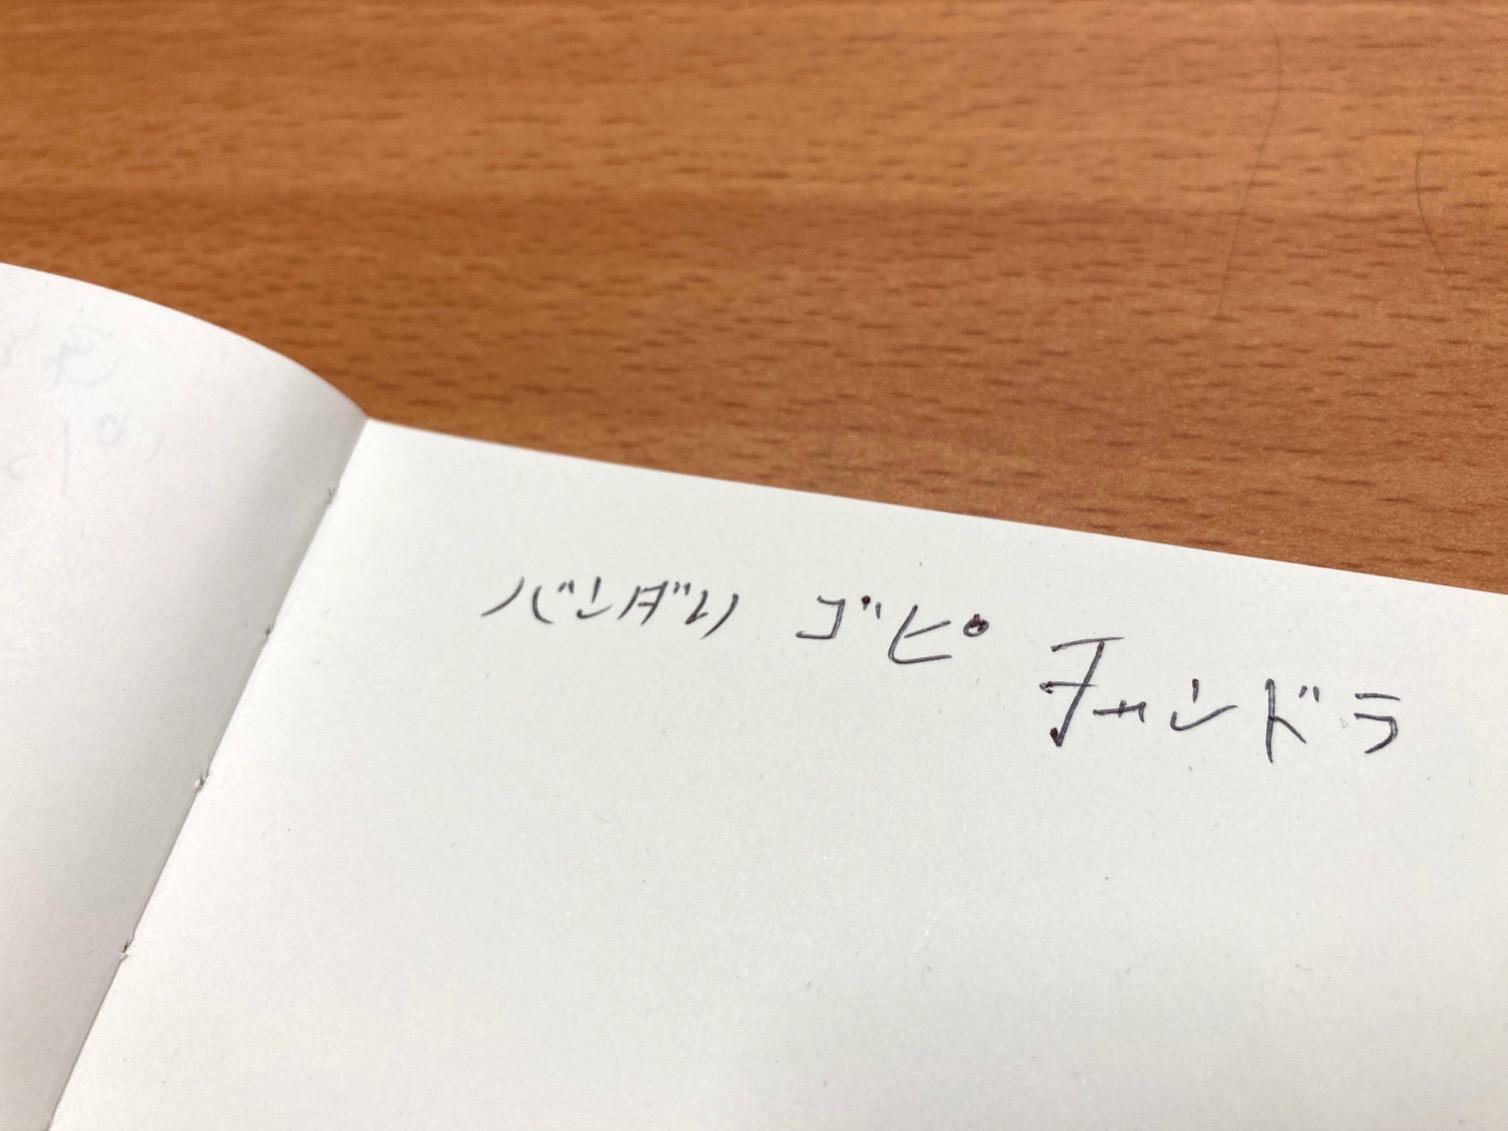 バンダリ ゴピ チャンドラ